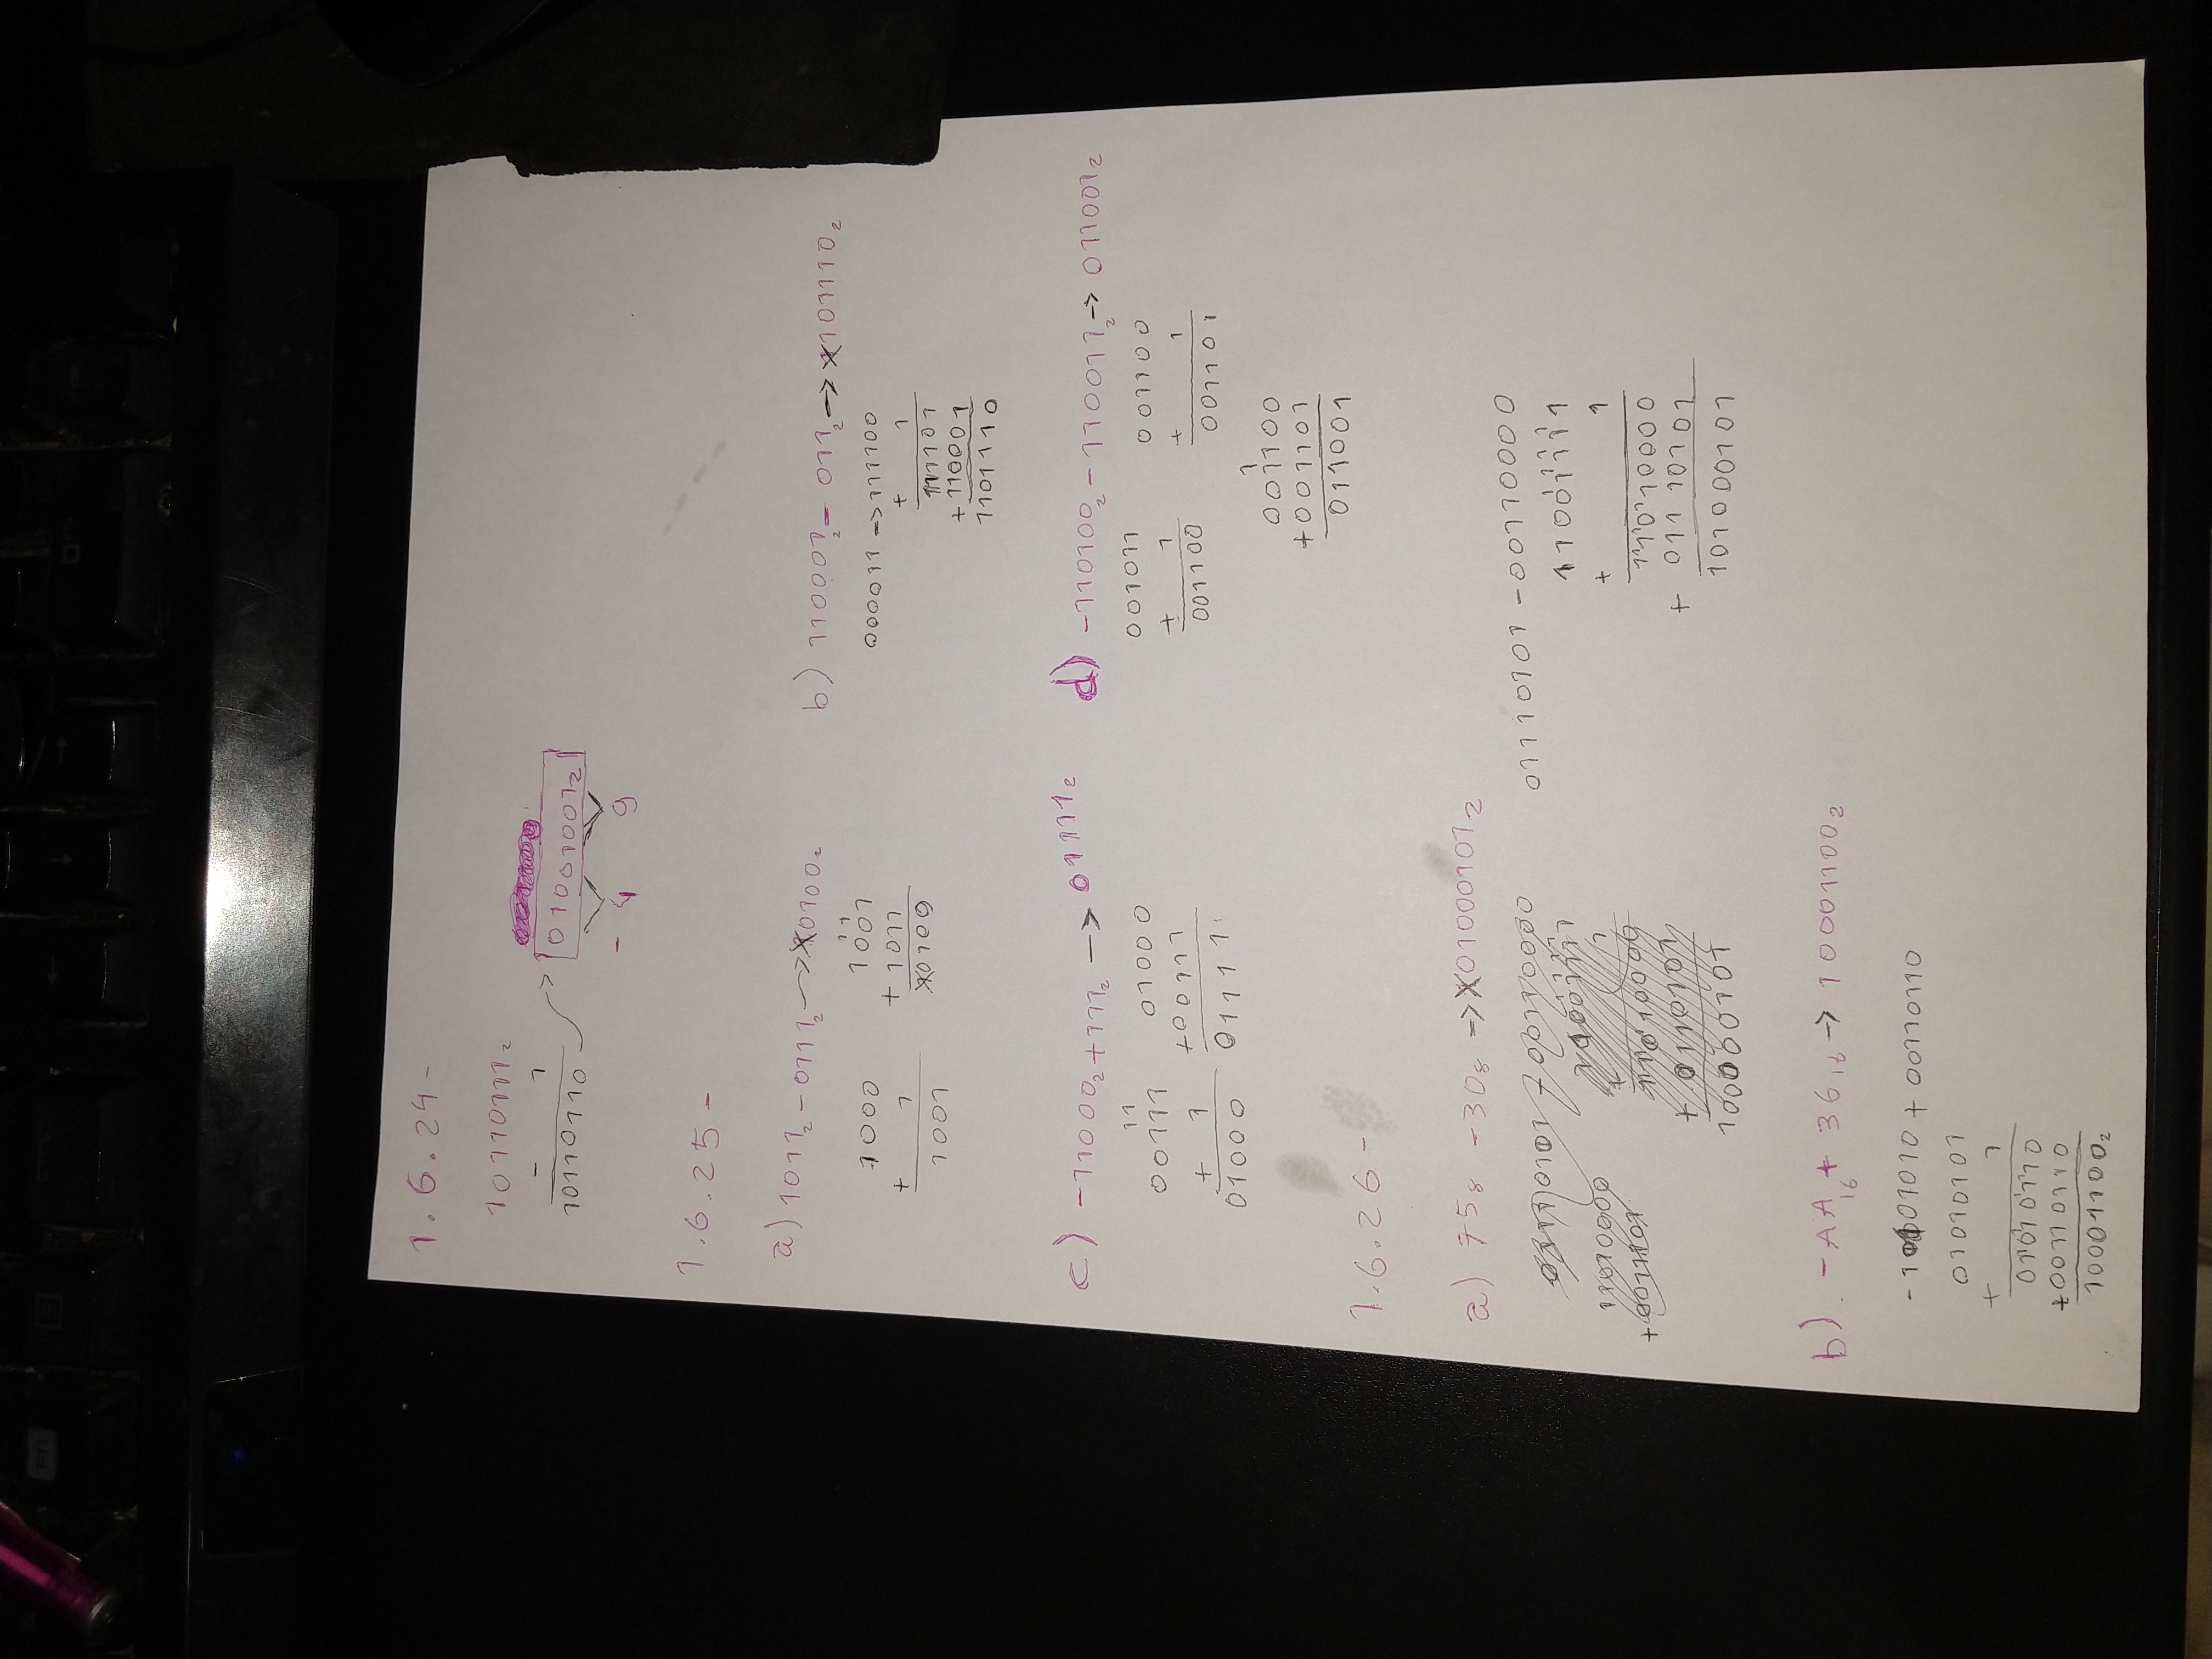 1.6.24-
10110111₂
- 1
10110110
01001001₂
- 4 9
1.6.25-
a) 1011₂ - 0111₂ -> X0100₂
1000
+ 1
1001
11
1001
+ 1011
X0100
b) 110001₂ - 011₂ -> X101110₂
000011 -> 111100
+ 1
111101
+ 110001
1101110
c) -11000₂ + 111₂ -> 01111₂
11
00111
+ 1
01000
01000
+00111
01111
d) -110100₂ - 110011₂ -> 011001₂
001011
+ 1
001100
001100
+ 1
001101
1
001100
+001101
011001
1.6.26-
a) 75₈ - 30₈ -> X01000101₂
01110101 - 00110000
1111
11001111
+ 1
11010000
+ 01110101
101000101
11010000
+
100000101
b) -AA₁₆ + 36₁₆ -> 10001100₂
01010 + 00110110
01010101
+ 1
01010110
+00110110
10001100₂